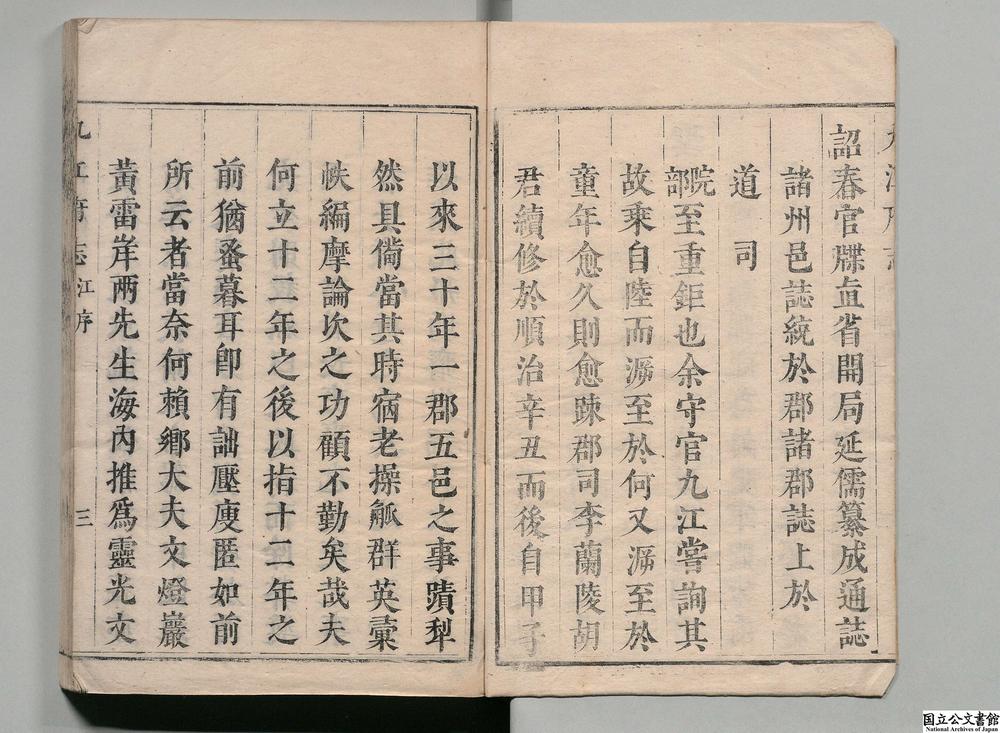 詔春官牒直省開局延儒纂成通誌
諸州邑誌統於郡諸郡誌上於
道司
院部至重鉅也余守官九江嘗詢其
故乘自陸而泝至於何又泝至於
童年愈久則愈踈郡司李蘭陵胡
君續修於順治辛丑而後自甲子
以來三十年一郡五邑之事蹟犁
然具備當其時宿老操觚群英彙
帙編摩論次之功顧不勤矣哉夫
何立十二年之後以指十二年之
前猶蚤暮耳卽有詘壓廋匿如前
所云者當奈何賴鄉大夫文燈巖
黃雷岸兩先生海內推爲靈光文
九江府志 江序 三
国立公文書館
National Archives of Japan